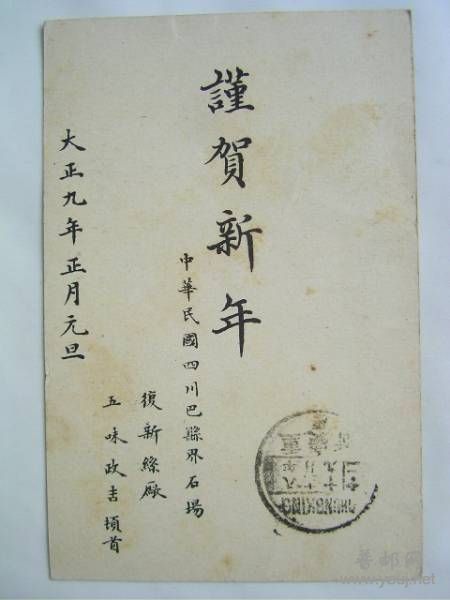 謹賀新年
中華民國四川巴縣界石場
復新絲厰
五味政吉頓首
大正九年正月元旦
CHUNGKING
重慶
普邮网
www.youj.net